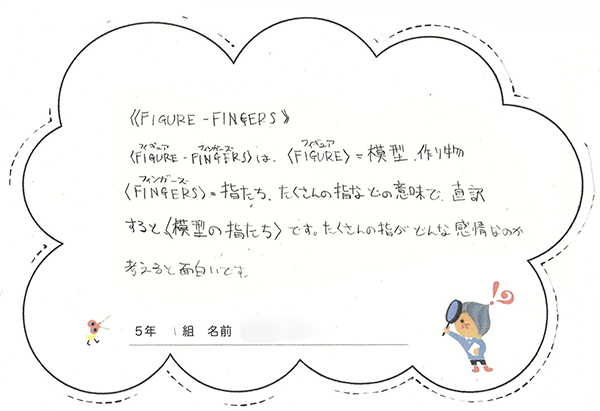 《FIGURE-FINGERS》
フィギュア フィンガーズ フィギュア
〈FIGURE-FINGERS〉は、〈FIGURE〉=模型、作り物
フィンガーズ
〈FINGERS〉=指たち、たくさんの指などの意味で、直訳
すると〈模型の指たち〉です。たくさんの指がどんな感情なのか
考えると面白いです。
!?
5年 1組 名前